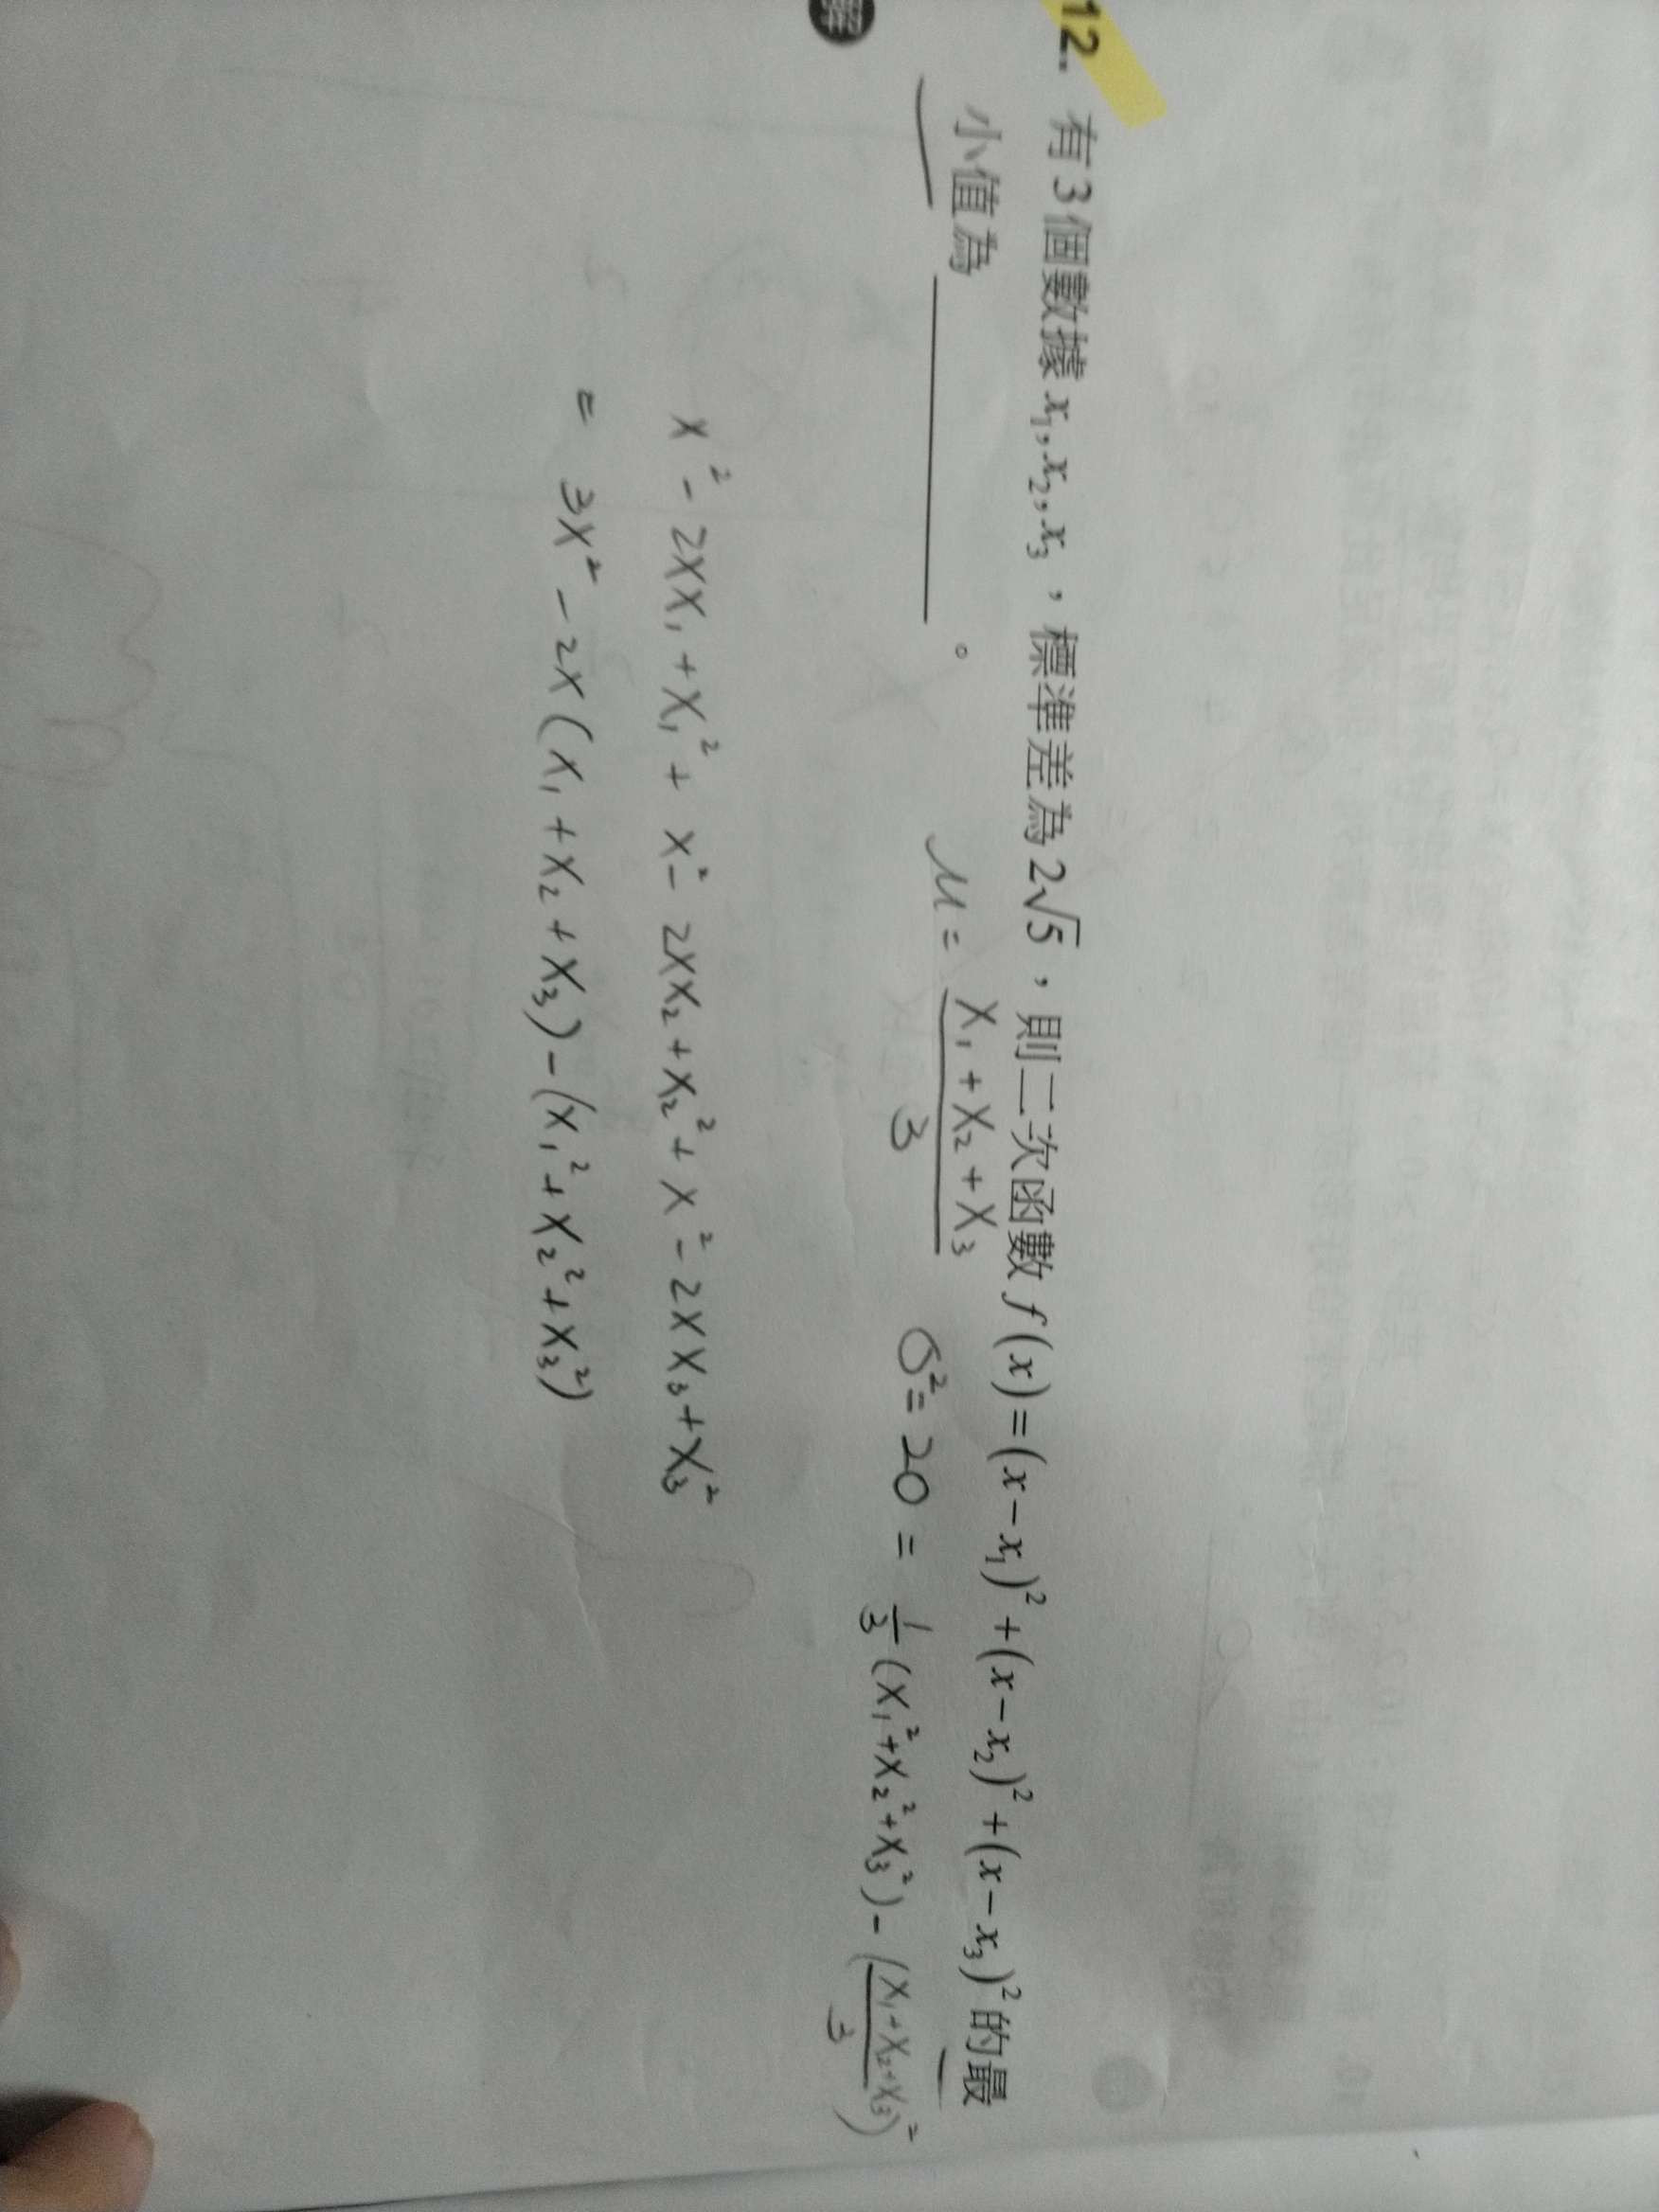 12. 有3個數據 x₁, x₂, x₃，標準差為 2√5，則二次函數 f(x)=(x−x₁)²+(x−x₂)²+(x−x₃)² 的最
小值為＿＿＿＿＿。
μ = (x₁+x₂+x₃)/3 σ² = 20 = 1/3 (x₁²+x₂²+x₃²) − ((x₁+x₂+x₃)/3)²
x² − 2xx₁ + x₁² + x² − 2xx₂ + x₂² + x² − 2xx₃ + x₃²
= 3x² − 2x(x₁+x₂+x₃) − (x₁²+x₂²+x₃²)